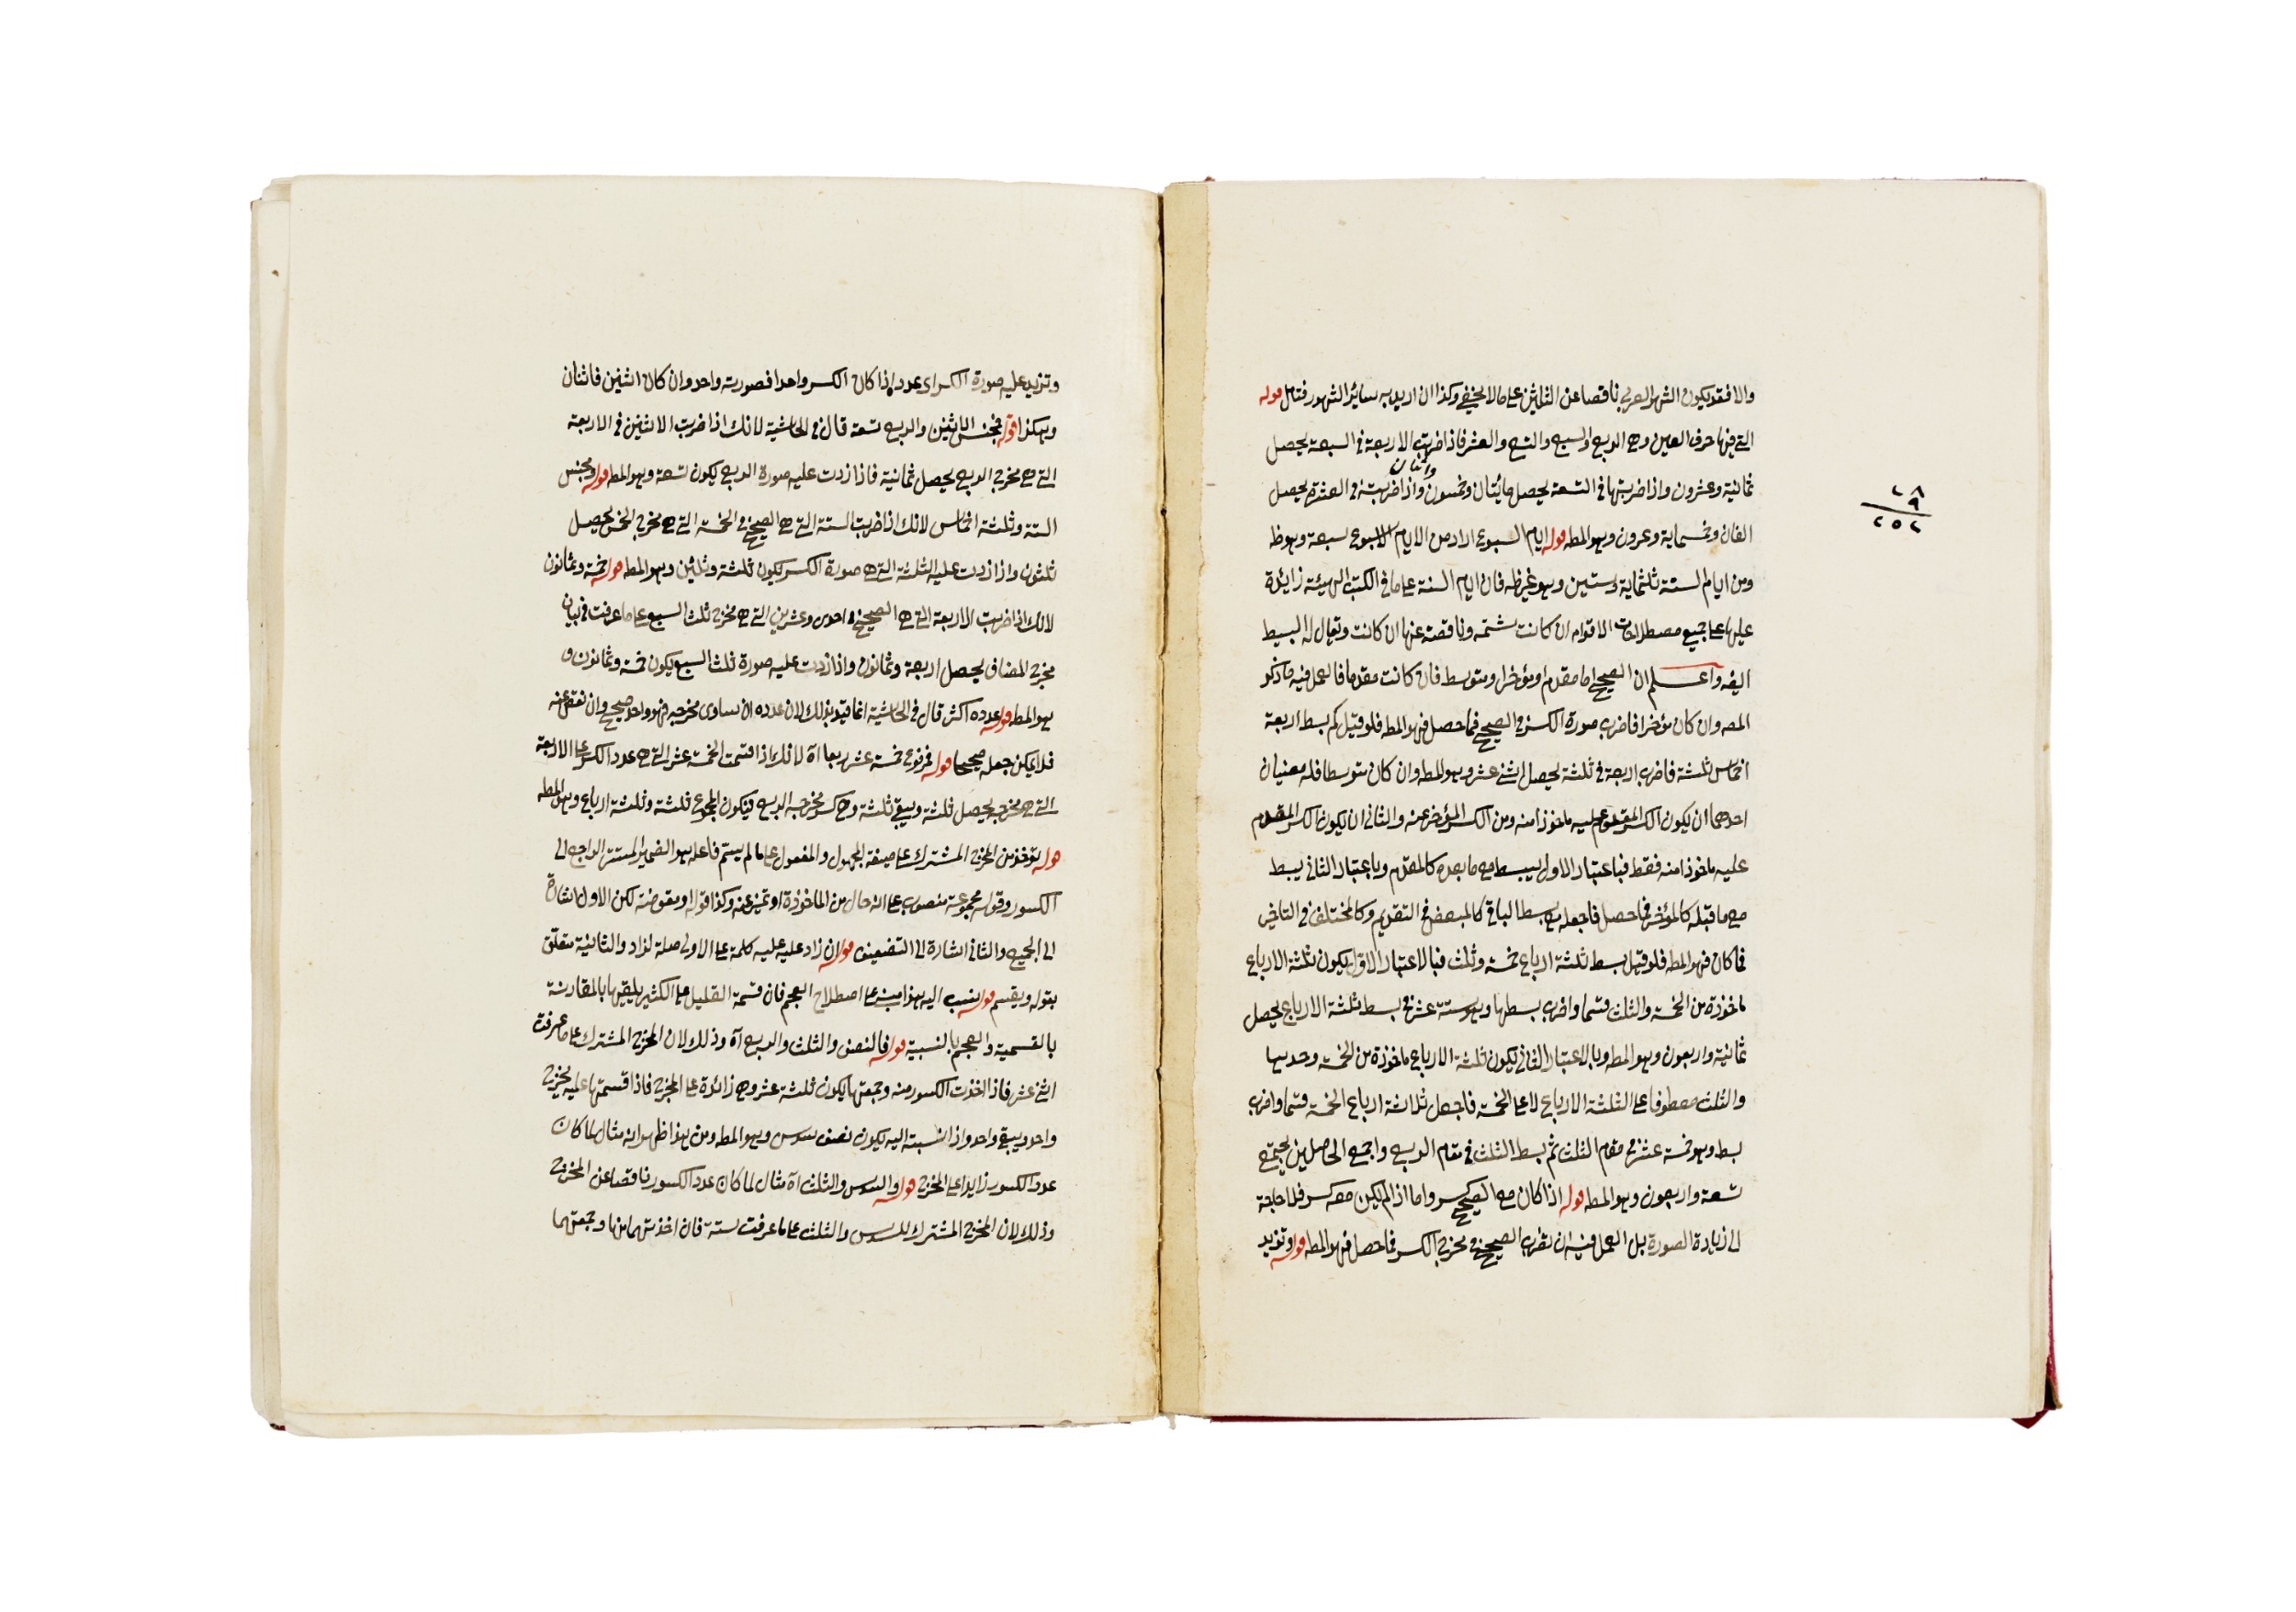 والا فقد يكون الشهر العربي ناقصا عن الثلثين على ما لا يخفى وكذا ان اريد به سائر الشهور فتامل قوله
التي فيها حرف العين وهي الربع والسبع والتسع والعشر فاذا ضربت الاربعة في السبعة يحصل
ثمانية وعشرون واذا ضربتها في التسعة يحصل مائتان وخمسون واثنان واذا ضربته في العشرة يحصل
الفان وخمسماية وعشرون وهو المطـ قوله ايام السبوع اراد من الايام الاسبوع سبعة وهو ظ
ومن ايام السنة ثلثماية وستين وهو غير ظـ فان ايام السنة على ما في الكتب الهيئة زائدة
عليها على جميع مصطلحات الاقوام ان كانت شمسـة وناقصة عنها ان كانت ويقال له البسيط
ايضـ واعلم ان الصحيح اما مقدم او مؤخر او متوسط فان كانت مقدما فالعمل فيه ما ذكر
المصـ وان كان مؤخرا فاضرب صورة الكسر في الصحيح فما حصل فهو المطـ فلو قيل كم بسط اربعة
اخماس ثلثة فاضرب اربعة في ثلثة يحصل اثنى عشر وهو المطـ وان كان متوسطا فله معنيان
احدهما ان يكون الكسر المقدم عليه ماخوذا منه ومن الكسر المؤخر عنه والثاني ان يكون الكسر المقدم
عليه ماخوذا منه فقط فباعتبار الاول يبسط مع ما بعده كالمقدم وباعتبار الثاني يبسط
مع ما قبله كالمؤخر فما حصل فاجعله مع بسط الباقي كالمبعض في التقديم وكالمختلف في التاخير
فما كان فهو المطـ فلو قيل بسط ثلثة ارباع خمسة وثلث فبالاعتبار الاول يكون ثلثة الارباع
ماخوذة من الخمسة والثلث قسما واضرب بسطها وهو ستة عشر في بسط ثلثة الارباع يحصل
ثمانية واربعون وهو المطـ وبالاعتبار الثاني يكون ثلثة الارباع ماخوذة من الخمسة وحدها
والثلث معطوفا على الثلثة الارباع لا على الخمسة فاجعل ثلاثة ارباع الخمسة قسما واضرب
بسط وهو خمسة عشر في مقام الثلث ثم بسط الثلث في مقام الربع واجمع الحاصلين يجتمع
تسعة واربعون وهو المطـ قوله اذا كان مع الصحيح كسر واما اذا لم يكن معه كسر فلا حاجة
الى زيادة الصورة بل العمل فيه ان تضرب الصحيح في مخرج الكسر فما حصل فهو المطـ قوله وتزيد
٢٨
٩
٢٥٢
وتزيد عليه صورة الكسر اى عدده اذا كان الكسر واحدا فصورته واحد وان كان اثنين فاثنان
وهكذا قوله فمجنس الاثنين والربع تسعة قال في الحاشية لانك اذا ضربت الاثنين في الاربعة
التي هي مخرج الربع يحصل ثمانية فاذا زدت عليه صورة الربع يكون تسعة وهو المطـ قوله ومجنس
الستة وثلثة اخماس لانك اذا ضربت الستة التي هي الصحيح في الخمسة التي هي مخرج الخمس يحصل
ثلثون واذا زدت عليه الثلثة التي هي صورة الكسر يكون ثلثة وثلثين وهو المطـ قوله خمسة وثمانون
لانك اذا ضربت الاربعة التي هي الصحيح في احدى وعشرين التي هي مخرج ثلث السبع على ما عرفت في بيان
مخرج المضاف يحصل اربعة وثمانون واذا زدت عليه صورة ثلث السبع يكون خمسة وثمانون و
هو المطـ قوله عدده اكثر قال في الحاشية انما قيد بذلك لان عدده ان ساوى مخرجه فهو واحد صحيح وان نقص عنه
فلا يمكن جعله صحيحا قوله فمرفوع خمسة عشر ربعا اه لانك اذا قسمت الخمسة عشر التي هي عدد الكسر على الاربعة
التي هي مخرجه يحصل ثلثة ويبقى ثلثة وهي كسر مخرجه الربع فيكون المجموع ثلثة وثلثة ارباع وهو المطـ
قوله توخذ من المخرج المشترك على صيغة المجهول والمفعول على ما لم يسم فاعله هو الضمير المستتر الراجع الى
الكسور وقوله مجموعة منصوب على انه حال من الماخوذة او تميز عنه وكذا قوله او مفوضة لكن الاول اشارة
الى الجميع والثاني اشارة الى التضعيف قوله ان زاد عليه عليه كلمة على الاولى صلة لزاد والثانية متعلق
بقوله ويقسم قوله ينسب اليه هذا مبني على اصطلاح العجم فان قسمة القليل على الكثير يلقبها بالمقاربة
بالقسمية والعجم بالنسبية قوله فالنصف والثلث والربع اه وذلك لان المخرج المشترك على ما عرفت
اثنى عشر فاذا اخذت الكسور منه وجمعتها يكون ثلثة عشر وهي زائدة على المخرج فاذا قسمتها عليه يخرج
واحد ويبقى واحد واذا نسبته اليه يكون نصف سدس وهو المطـ ومن هذا ظهر انه مثال لما كان
عدد الكسور زايدا على المخرج قوله والسدس والثلث اه مثال لما كان عدد الكسور ناقصا عن المخرج
وذلك لان المخرج المشترك للسدس والثلث على ما عرفت ستة فان اخذتهما منها وجمعتهما